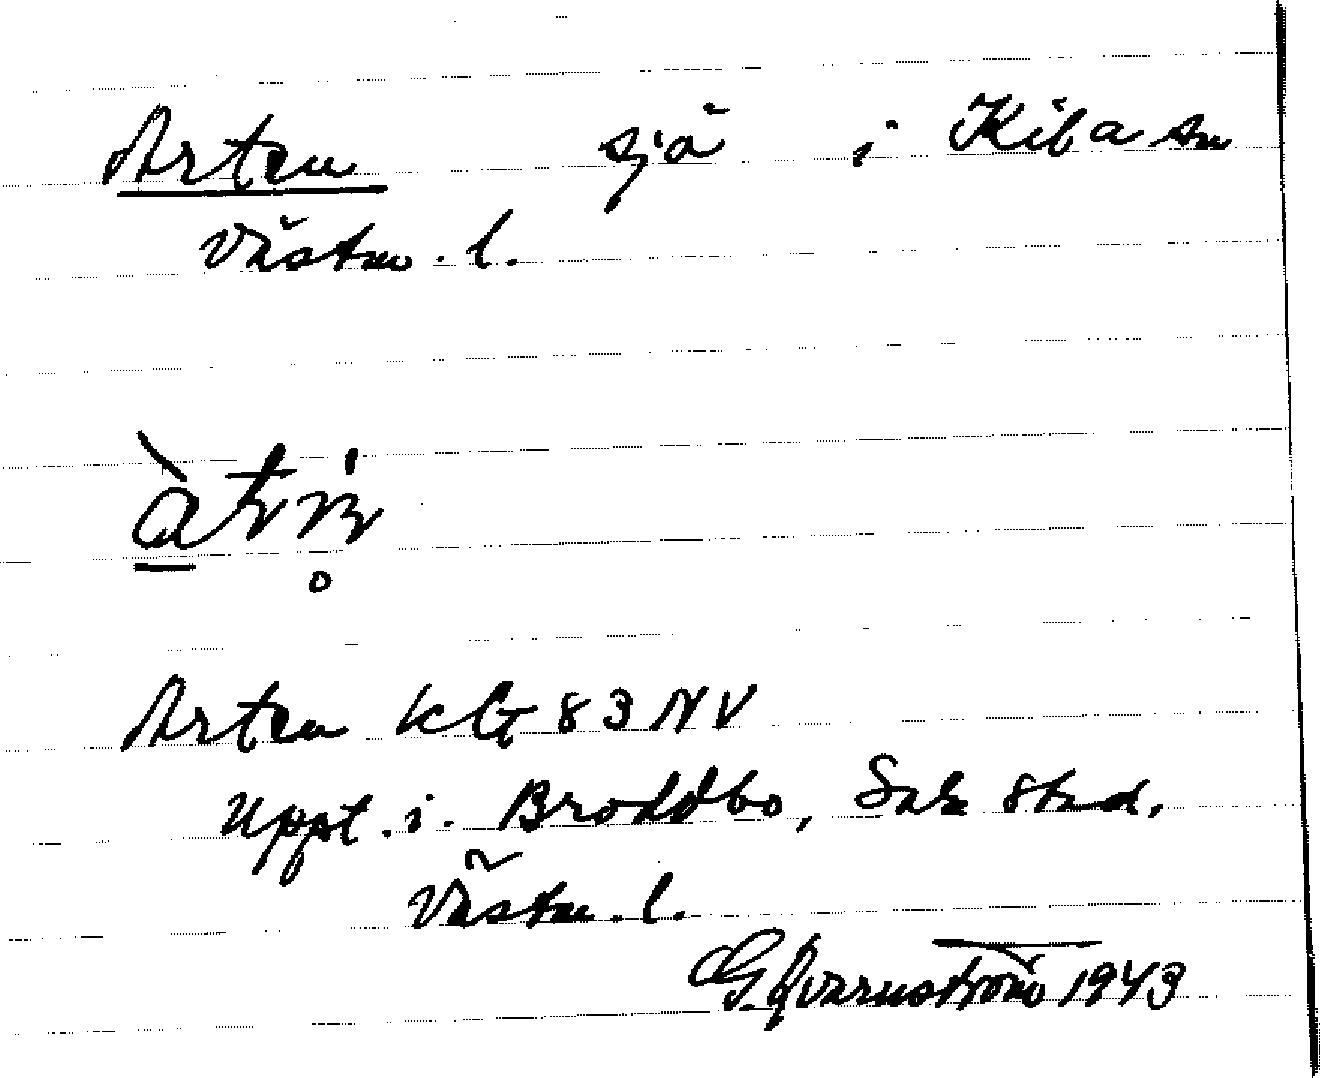 Arten sjö i Kila sn
Västm. l.
Arten kG 83 NV
Uppt. i. Broddbo, Sala stad,
Västm. l.
G. Qvarnström 1943